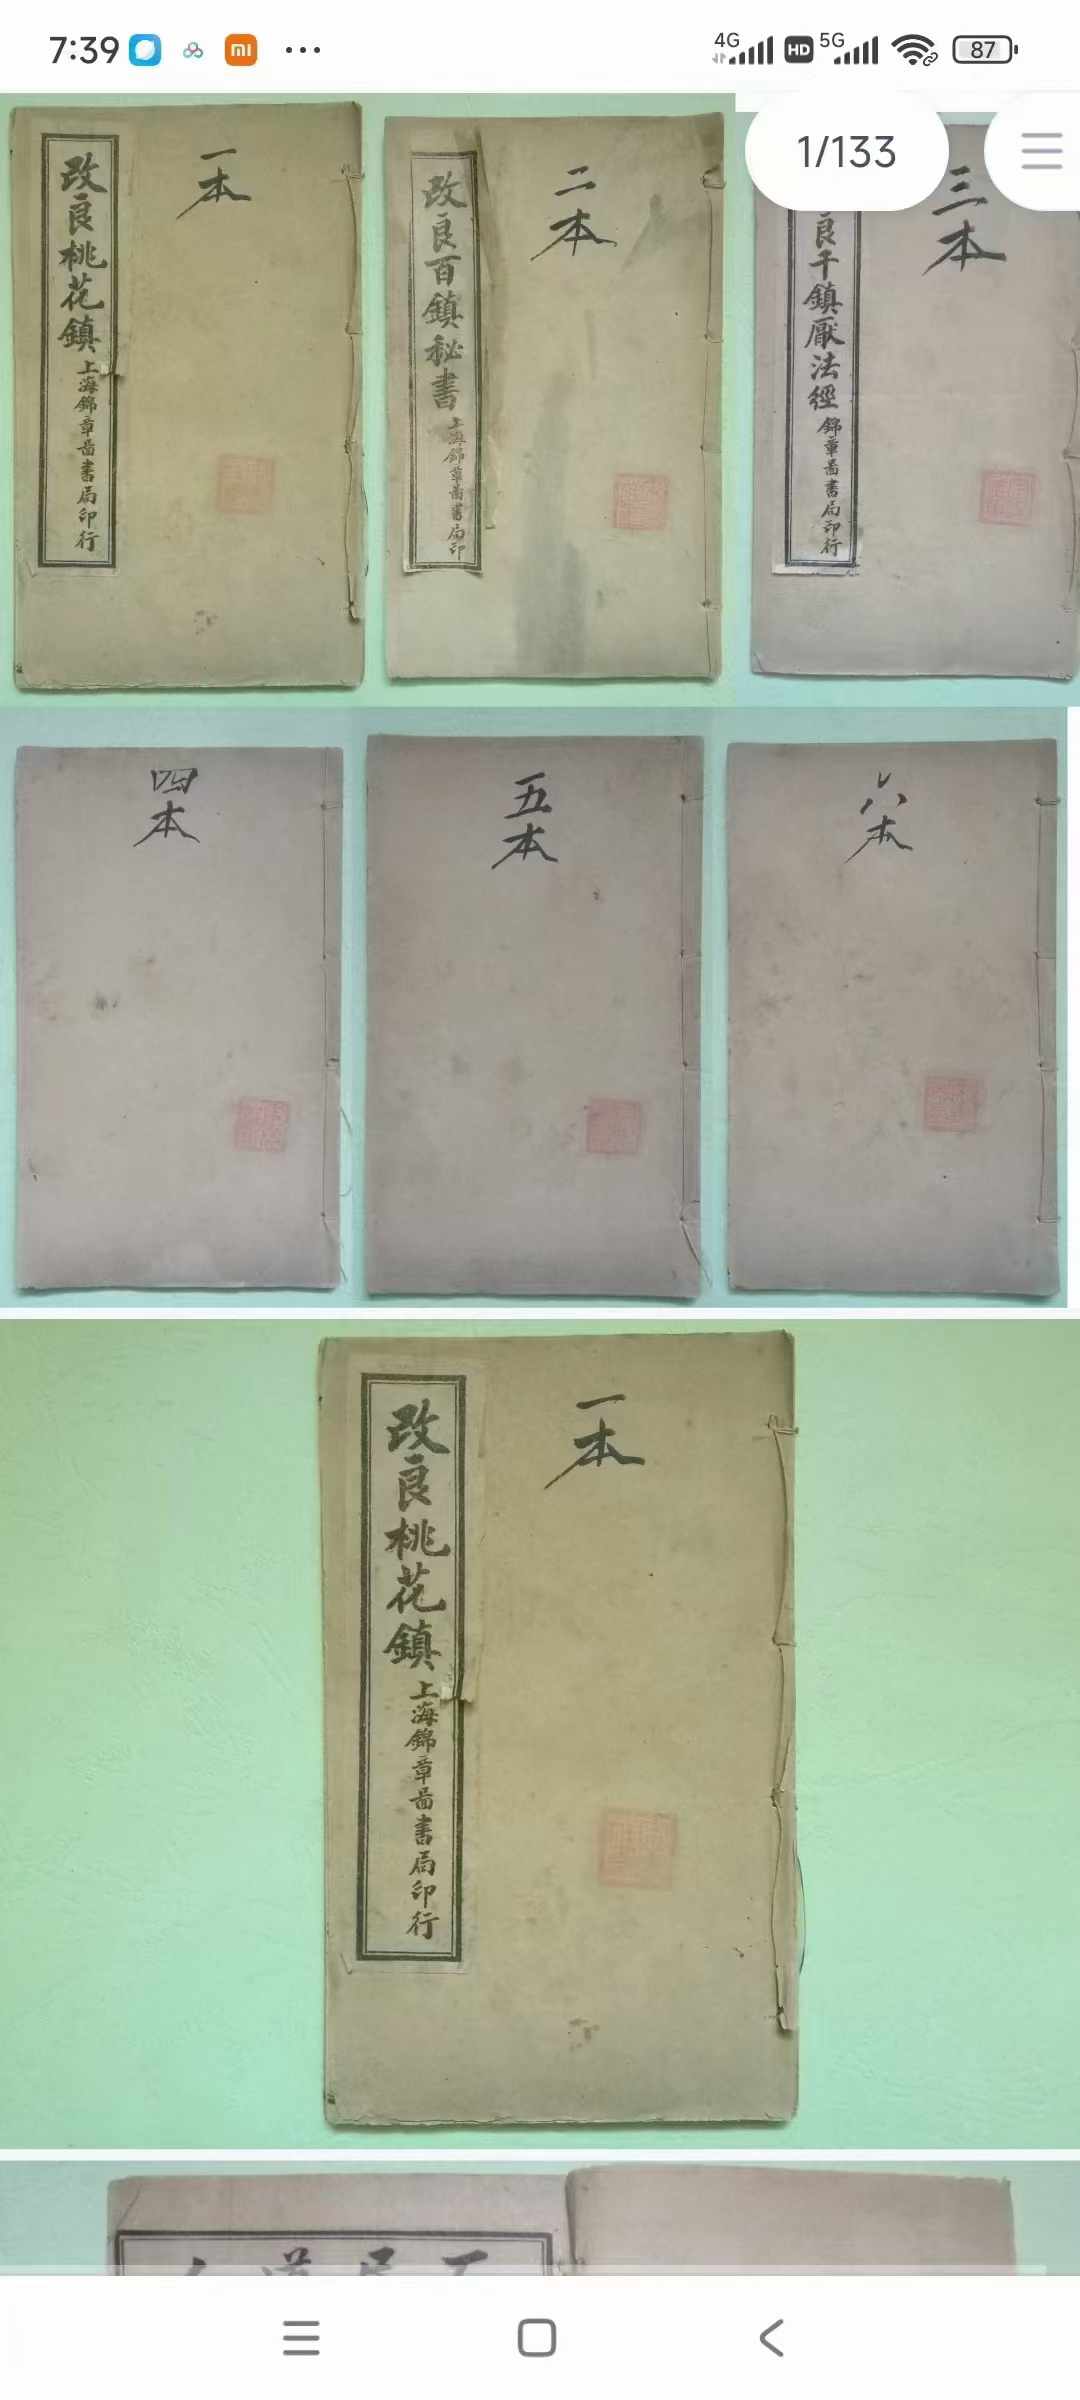 7:39
4G
HD
5G
87
1/133
一本
改良桃花鎮
上海錦章啚書局印行
二本
改良百鎮秘書
上海錦章啚書局印
三本
良千鎮厭法經
錦章啚書局印行
四本
五本
六本
一本
改良桃花鎮
上海錦章啚書局印行